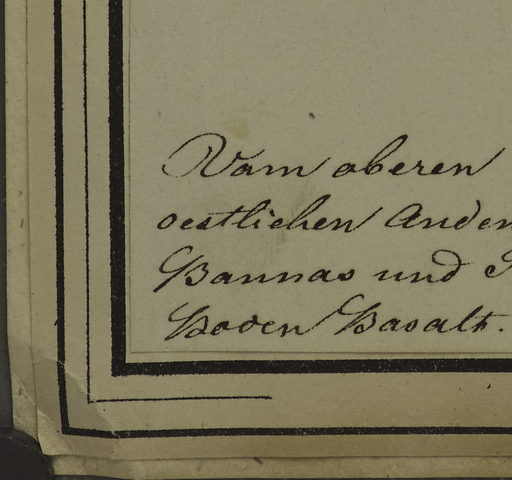 Vom oberen
oestlichen Anden
Bannas und
Boden Basalt.